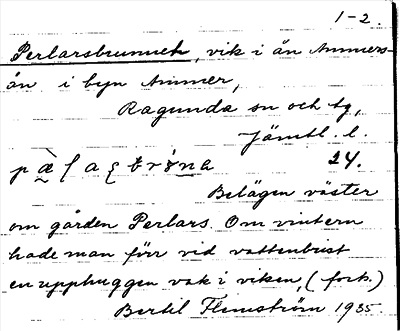 1-2.
Perlarsbrunnen, vik i ån Ammers-
ån i byn Ammer,
Ragunda sn och tg,
Jämtl. l.
24.
Belägen väster
om gården Perlars. Om vintern
hade man förr vid vattenbrist
en upphuggen vak i viken, (forts.)
Bertil Flemström 1935.